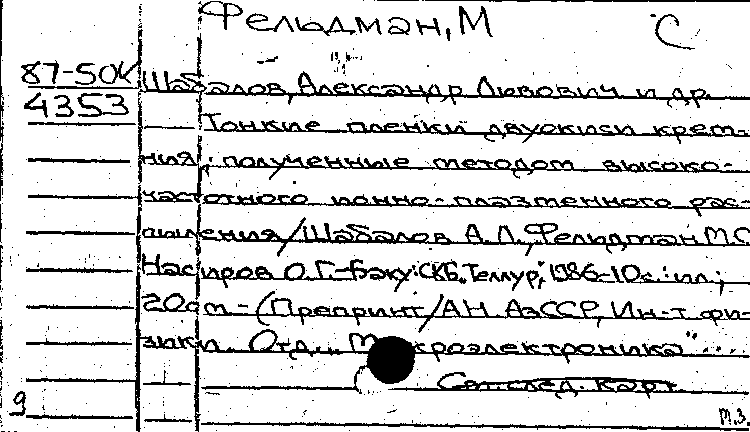 Фельдман, М С
87-50к
4353
Шабалов, Александр Львович и др.
Тонкие пленки двуокиси крем-
ния, полученные методом высоко-
частотного ионно-плазменного рас-
пыления/Шабалов А.Л., Фельдман М.С.
Насиров О.Г.-Баку: СКБ "Теллур", 1986-10с.: ил.;
20см - (Препринт/АН АзССР, Ин-т фи-
зики. Отд. М кроэлектроника" ...
См. след. карт.
9
м.з.